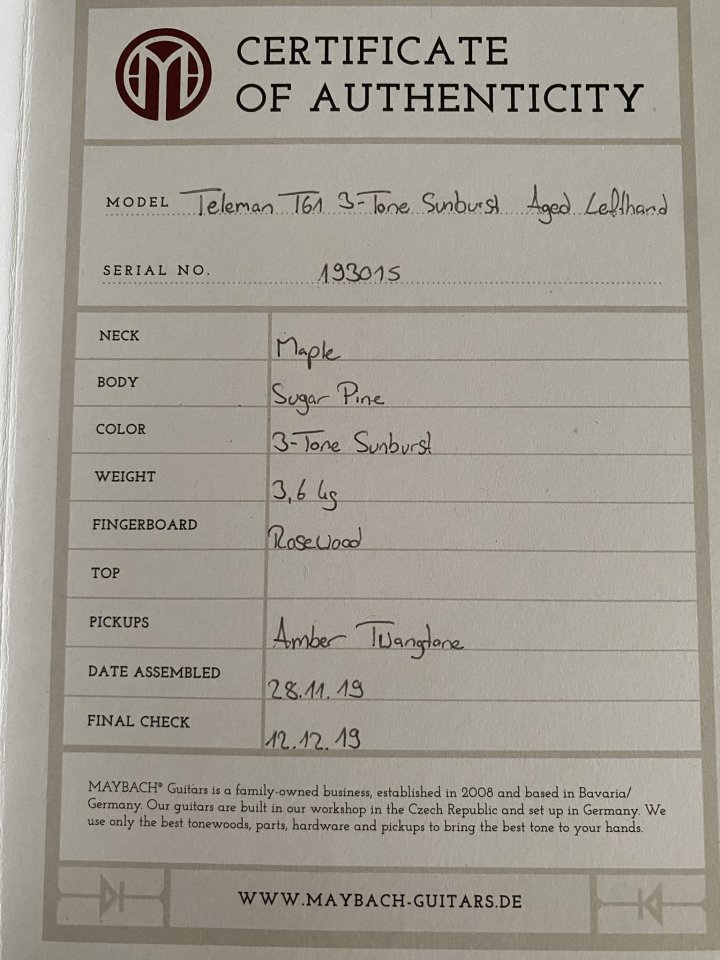 CERTIFICATE
OF AUTHENTICITY
MODEL Teleman T61 3-Tone Sunburst Aged Lefthand
SERIAL NO. 193015
NECK Maple
BODY Sugar Pine
COLOR 3-Tone Sunburst
WEIGHT 3,6 kg
FINGERBOARD Rosewood
TOP
PICKUPS Amber Twangtone
DATE ASSEMBLED 28.11.19
FINAL CHECK 12.12.19
MAYBACH® Guitars is a family-owned business, established in 2008 and based in Bavaria/
Germany. Our guitars are built in our workshop in the Czech Republic and set up in Germany. We
use only the best tonewoods, parts, hardware and pickups to bring the best tone to your hands.
WWW.MAYBACH-GUITARS.DE